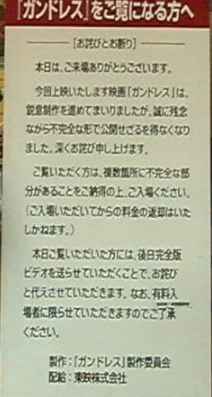 「ガンドレス」をご覧になる方へ
[お詫びとお断り]
本日は、ご来場ありがとうございます。
今回上映いたします映画『ガンドレス』は、
鋭意制作を進めてまいりましたが、誠に残念
ながら不完全な形で公開せざるを得なくなり
ました。深くお詫び申し上げます。
ご覧いただく方は、複数箇所に不完全な部
分があることをご納得の上、ご入場ください。
(ご入場いただいてからの料金の返却はいた
しかねます。)
本日ご覧いただいた方には、後日完全版
ビデオを送らせていただくことで、お詫び
と代えさせていただきます。なお、有料入
場者に限らせていただきますのでご了承
ください。
製作：『ガンドレス』製作委員会
配給：東映株式会社